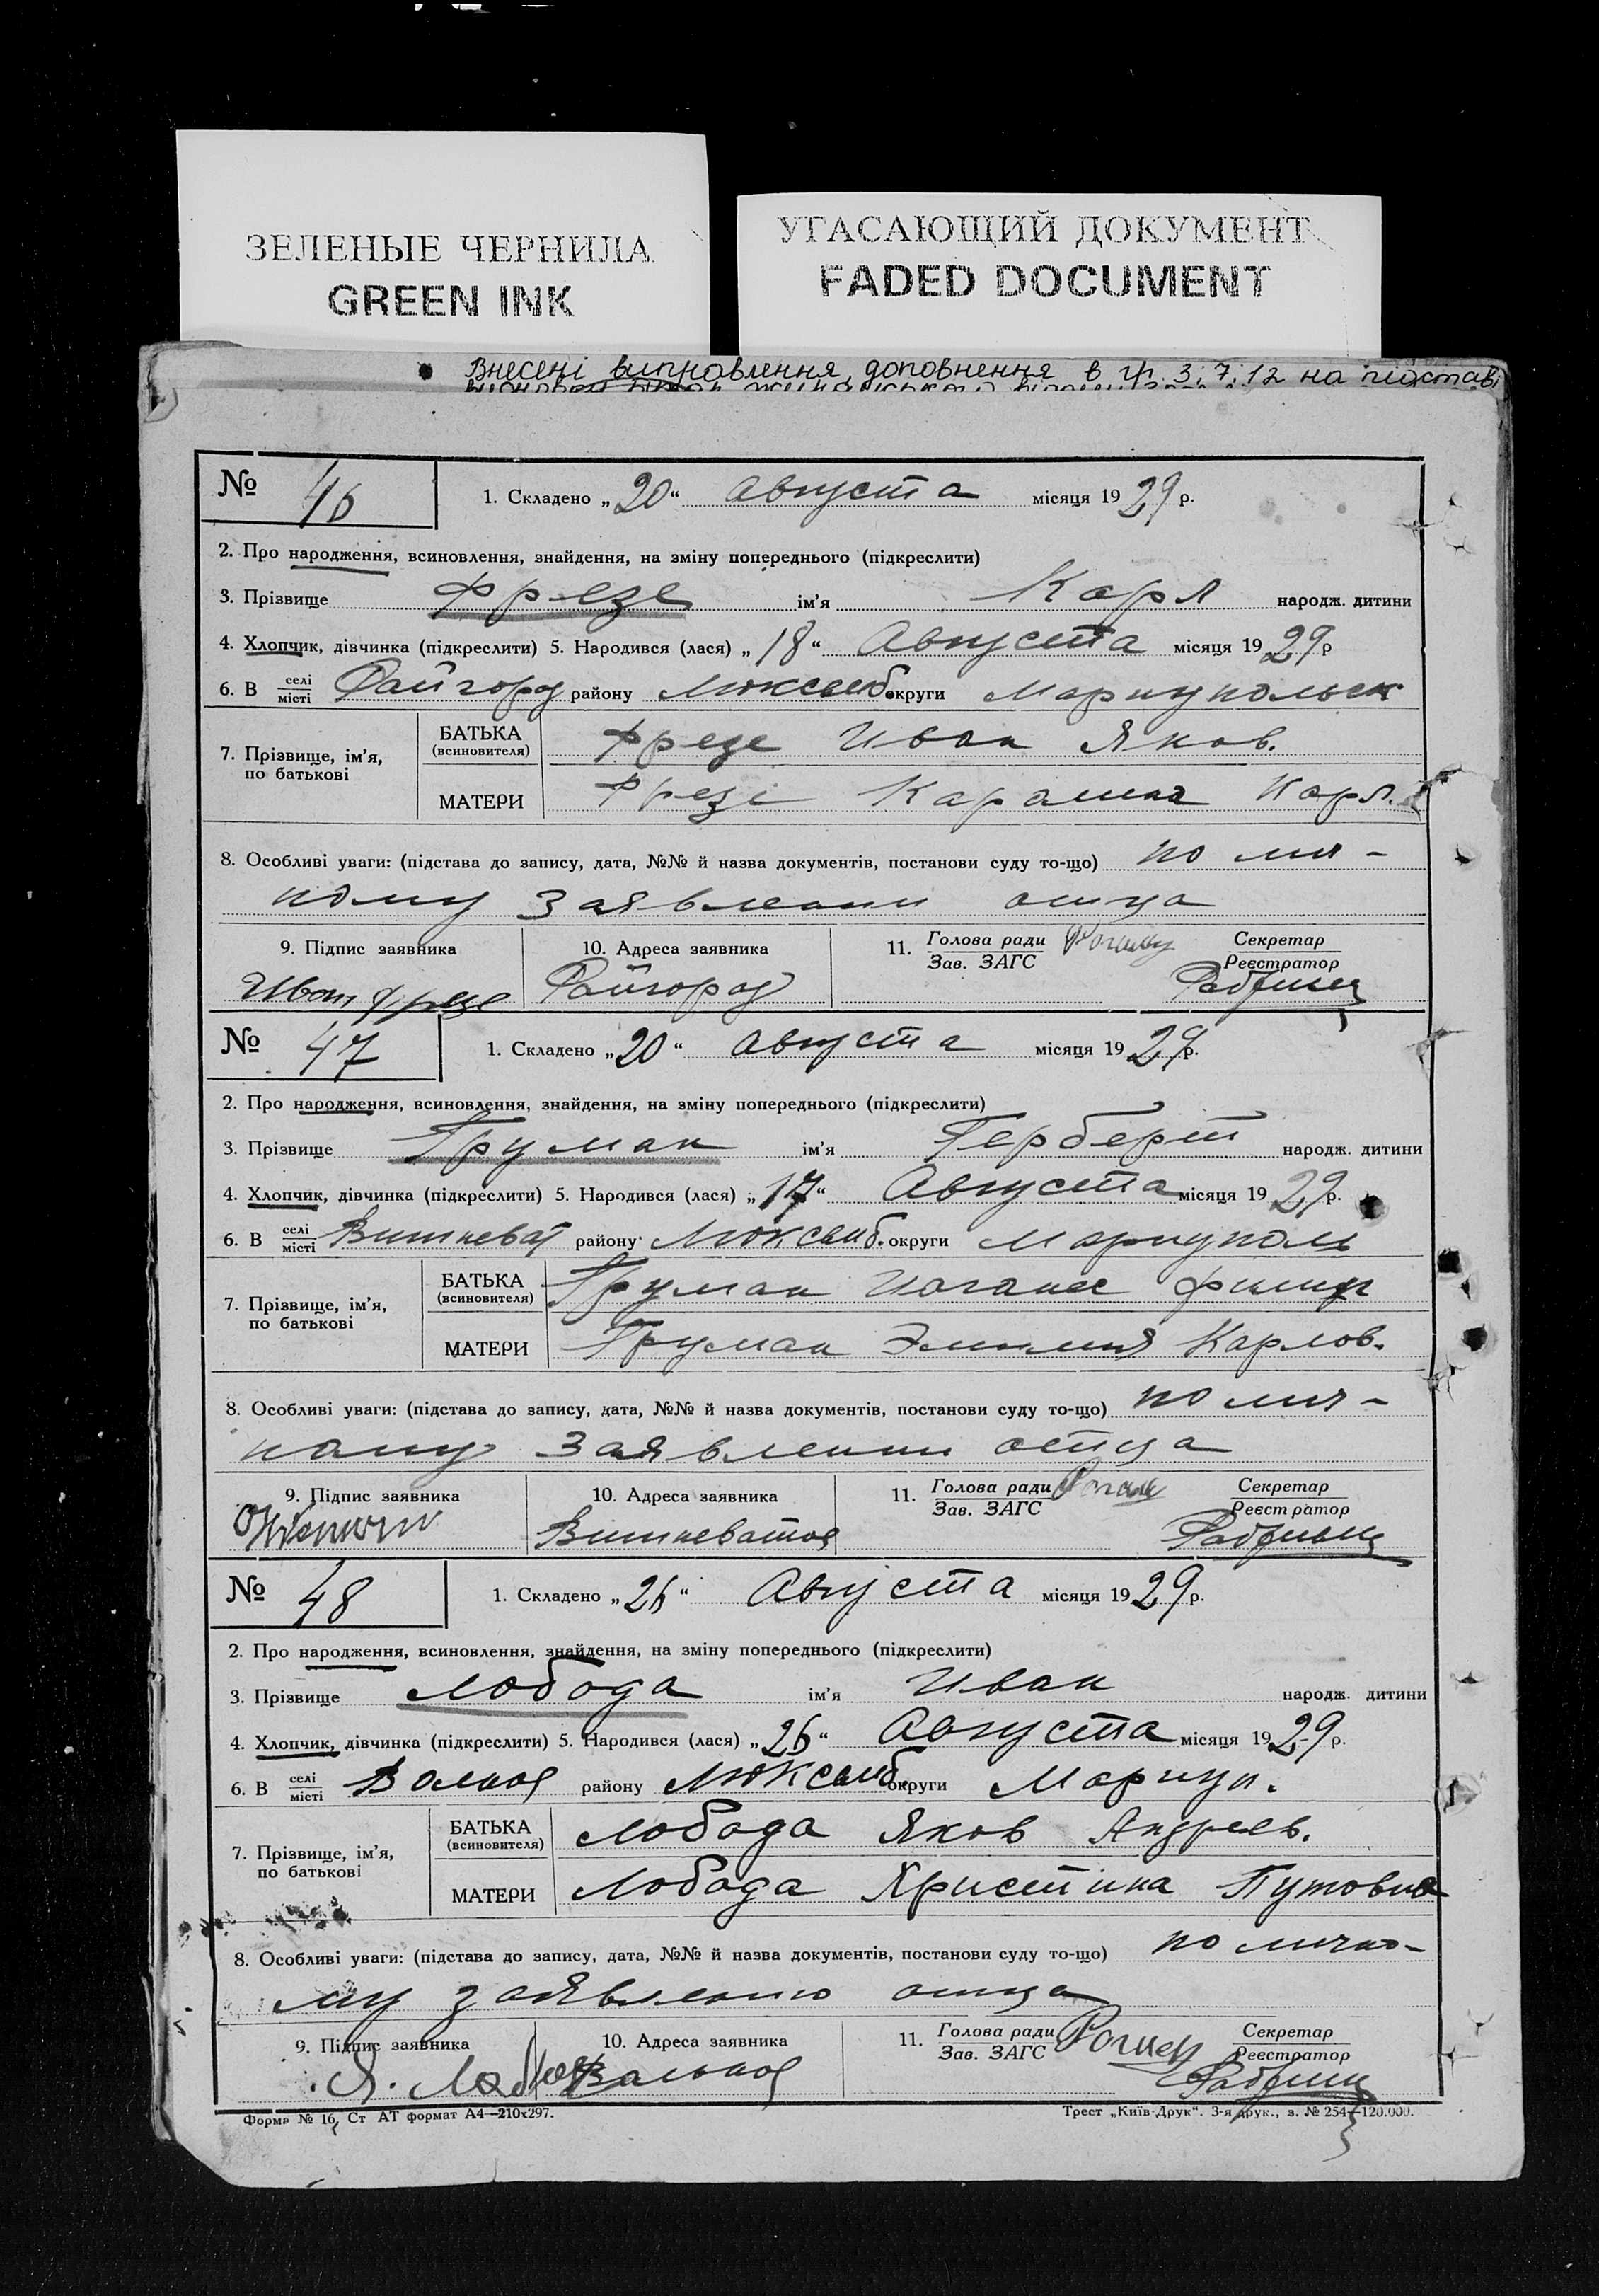 ЗЕЛЕНЫЕ ЧЕРНИЛА
GREEN INK
УГАСАЮЩИЙ ДОКУМЕНТ
FADED DOCUMENT
Внесені виправлення, доповнення в гр. 3, 7, 12 на підставі
№ 46 1. Складено „20“ Августа місяця 1929 р.
2. Про народження, всиновлення, знайдення, на зміну попереднього (підкреслити)
3. Прізвище Фрезе ім'я Карл народж. дитини
4. Хлопчик, дівчинка (підкреслити) 5. Народився (лася) „18“ Августа місяця 1929 р
6. В селі місті Райгород району Люксемб. округи Мариупольск
7. Прізвище, ім'я, по батькові
БАТЬКА (всиновителя) Фрезе Иван Яков.
МАТЕРИ Фрезе Каралина Карл.
8. Особливі уваги: (підстава до запису, дата, №№ й назва документів, постанови суду то-що) по ли-
ному заявлении отца
9. Підпис заявника 10. Адреса заявника 11. Голова ради Зав. ЗАГС Секретар Реєстратор
Иван Фрезе Райгород
№ 47 1. Складено „20“ Августа місяця 1929 р.
2. Про народження, всиновлення, знайдення, на зміну попереднього (підкреслити)
3. Прізвище Труман ім'я Герберт народж. дитини
4. Хлопчик, дівчинка (підкреслити) 5. Народився (лася) „17“ Августа місяця 1929 р.
6. В селі місті Вишневат району Люксемб. округи Мариуполь
7. Прізвище, ім'я, по батькові
БАТЬКА (всиновителя) Труман Иоганес Филип
МАТЕРИ Труман Эмилия Карлов.
8. Особливі уваги: (підстава до запису, дата, №№ й назва документів, постанови суду то-що) по ли-
ному заявлении отца
9. Підпис заявника 10. Адреса заявника 11. Голова ради Зав. ЗАГС Секретар Реєстратор
Вишневатое
№ 48 1. Складено „26“ Августа місяця 1929 р.
2. Про народження, всиновлення, знайдення, на зміну попереднього (підкреслити)
3. Прізвище Лобода ім'я Иван народж. дитини
4. Хлопчик, дівчинка (підкреслити) 5. Народився (лася) „26“ Августа місяця 1929 р.
6. В селі місті Волное району Люксемб. округи Мариуп.
7. Прізвище, ім'я, по батькові
БАТЬКА (всиновителя) Лобода Яков Андреев.
МАТЕРИ Лобода Христина
8. Особливі уваги: (підстава до запису, дата, №№ й назва документів, постанови суду то-що) по лично-
му заявлению отца
9. Підпис заявника 10. Адреса заявника 11. Голова ради Зав. ЗАГС Секретар Реєстратор
Я. Лобода Вальное
Форма № 16, Ст АТ формат А4—210х297.
Трест „Київ-Друк“. 3-я друк., з. № 254—120.000.